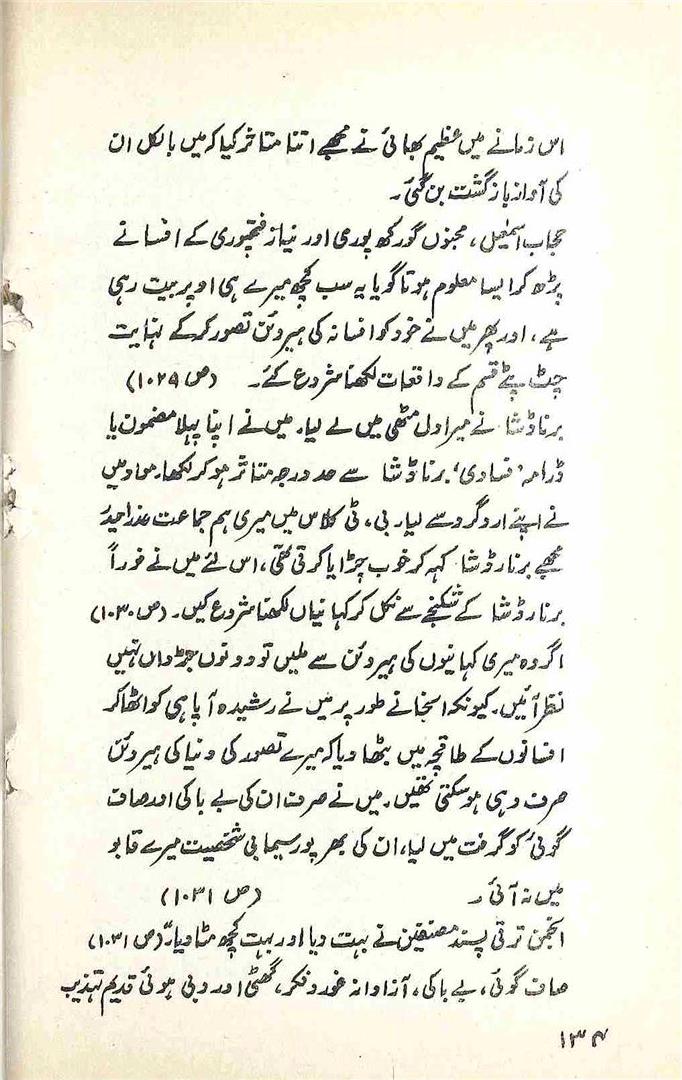 اس زمانے میں عظیم بھائی نے مجھے اتنا متاثر کیا کہ میں بالکل ان
کی آواز بازگشت بن گئی۔
حجاب اسمٰعیل، مجنوں گورکھپوری اور نیاز فتحپوری کے افسانے
پڑھ کر ایسا معلوم ہوتا گویا یہ سب کچھ میرے ہی اوپر بیت رہی
ہے، اور پھر میں نے خود کو افسانہ کی ہیروئن تصور کر کے نہایت
چٹ پٹے قسم کے واقعات لکھنا شروع کئے۔ (ص ۱۰۲۹)
برناڈشا نے میرا دل مٹھی میں لے لیا۔ میں نے اپنا پہلا مضمون یا
ڈرامہ 'فسادی' برناڈشا سے حد درجہ متاثر ہو کر لکھا۔ مواد میں
نے اپنے اردگرد سے لیا۔ بی، ٹی کلاس میں میری ہم جماعت عذرا حیدر
مجھے برنارڈشا کہہ کر خوب چڑایا کرتی تھی، اس لئے میں نے فوراً
برنارڈشا کے شکنجے سے نکل کر کہانیاں لکھنا شروع کیں۔ (ص ۱۰۳۰)
اگر وہ میری کہانیوں کی ہیروئن سے ملیں تو دونوں جڑواں بہنیں
نظر آئیں۔ کیونکہ انجانے طور پر میں نے رشیدہ آپا ہی کو اٹھا کر
افسانوں کے طاقچہ میں بٹھا دیا کہ میرے تصور کی دنیا کی ہیروئن
صرف وہی ہو سکتی تھیں۔ میں نے صرف ان کی بے باکی اور صاف
گوئی کو گرفت میں لیا، ان کی بھرپور سیمابی شخصیت میرے قابو
میں نہ آئی۔ (ص ۱۰۳۱)
انجمن ترقی پسند مصنفین نے بہت دیا اور بہت کچھ مٹا دیا۔" (ص ۱۰۳۱)
صاف گوئی، بے باکی، آزادانہ غور و فکر، گھٹی اور دبی ہوئی قدیم تہذیب
۱۳۴